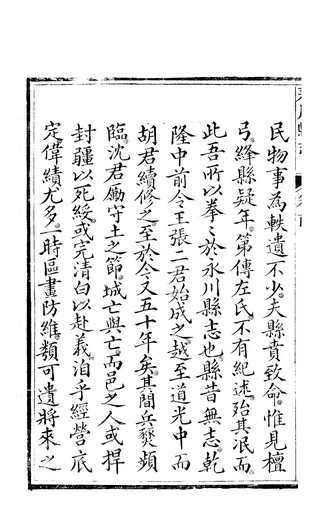 民物事為軼遺不少夫縣賁致命惟見檀
弓絳縣疑年第傳左氏不有紀述殆其泯而
此吾所以拳々於永川縣志也縣昔無志乾
隆中前令王張二君始成之越至道光中而
胡君續修之至於今又五十年矣其間兵燹頻
臨沈君勵守土之節城亡與亡而邑之人或捍
封疆以死綏或完清白以赴義洎乎經營底
定偉績尤多一時區畫防維類可遺將來之